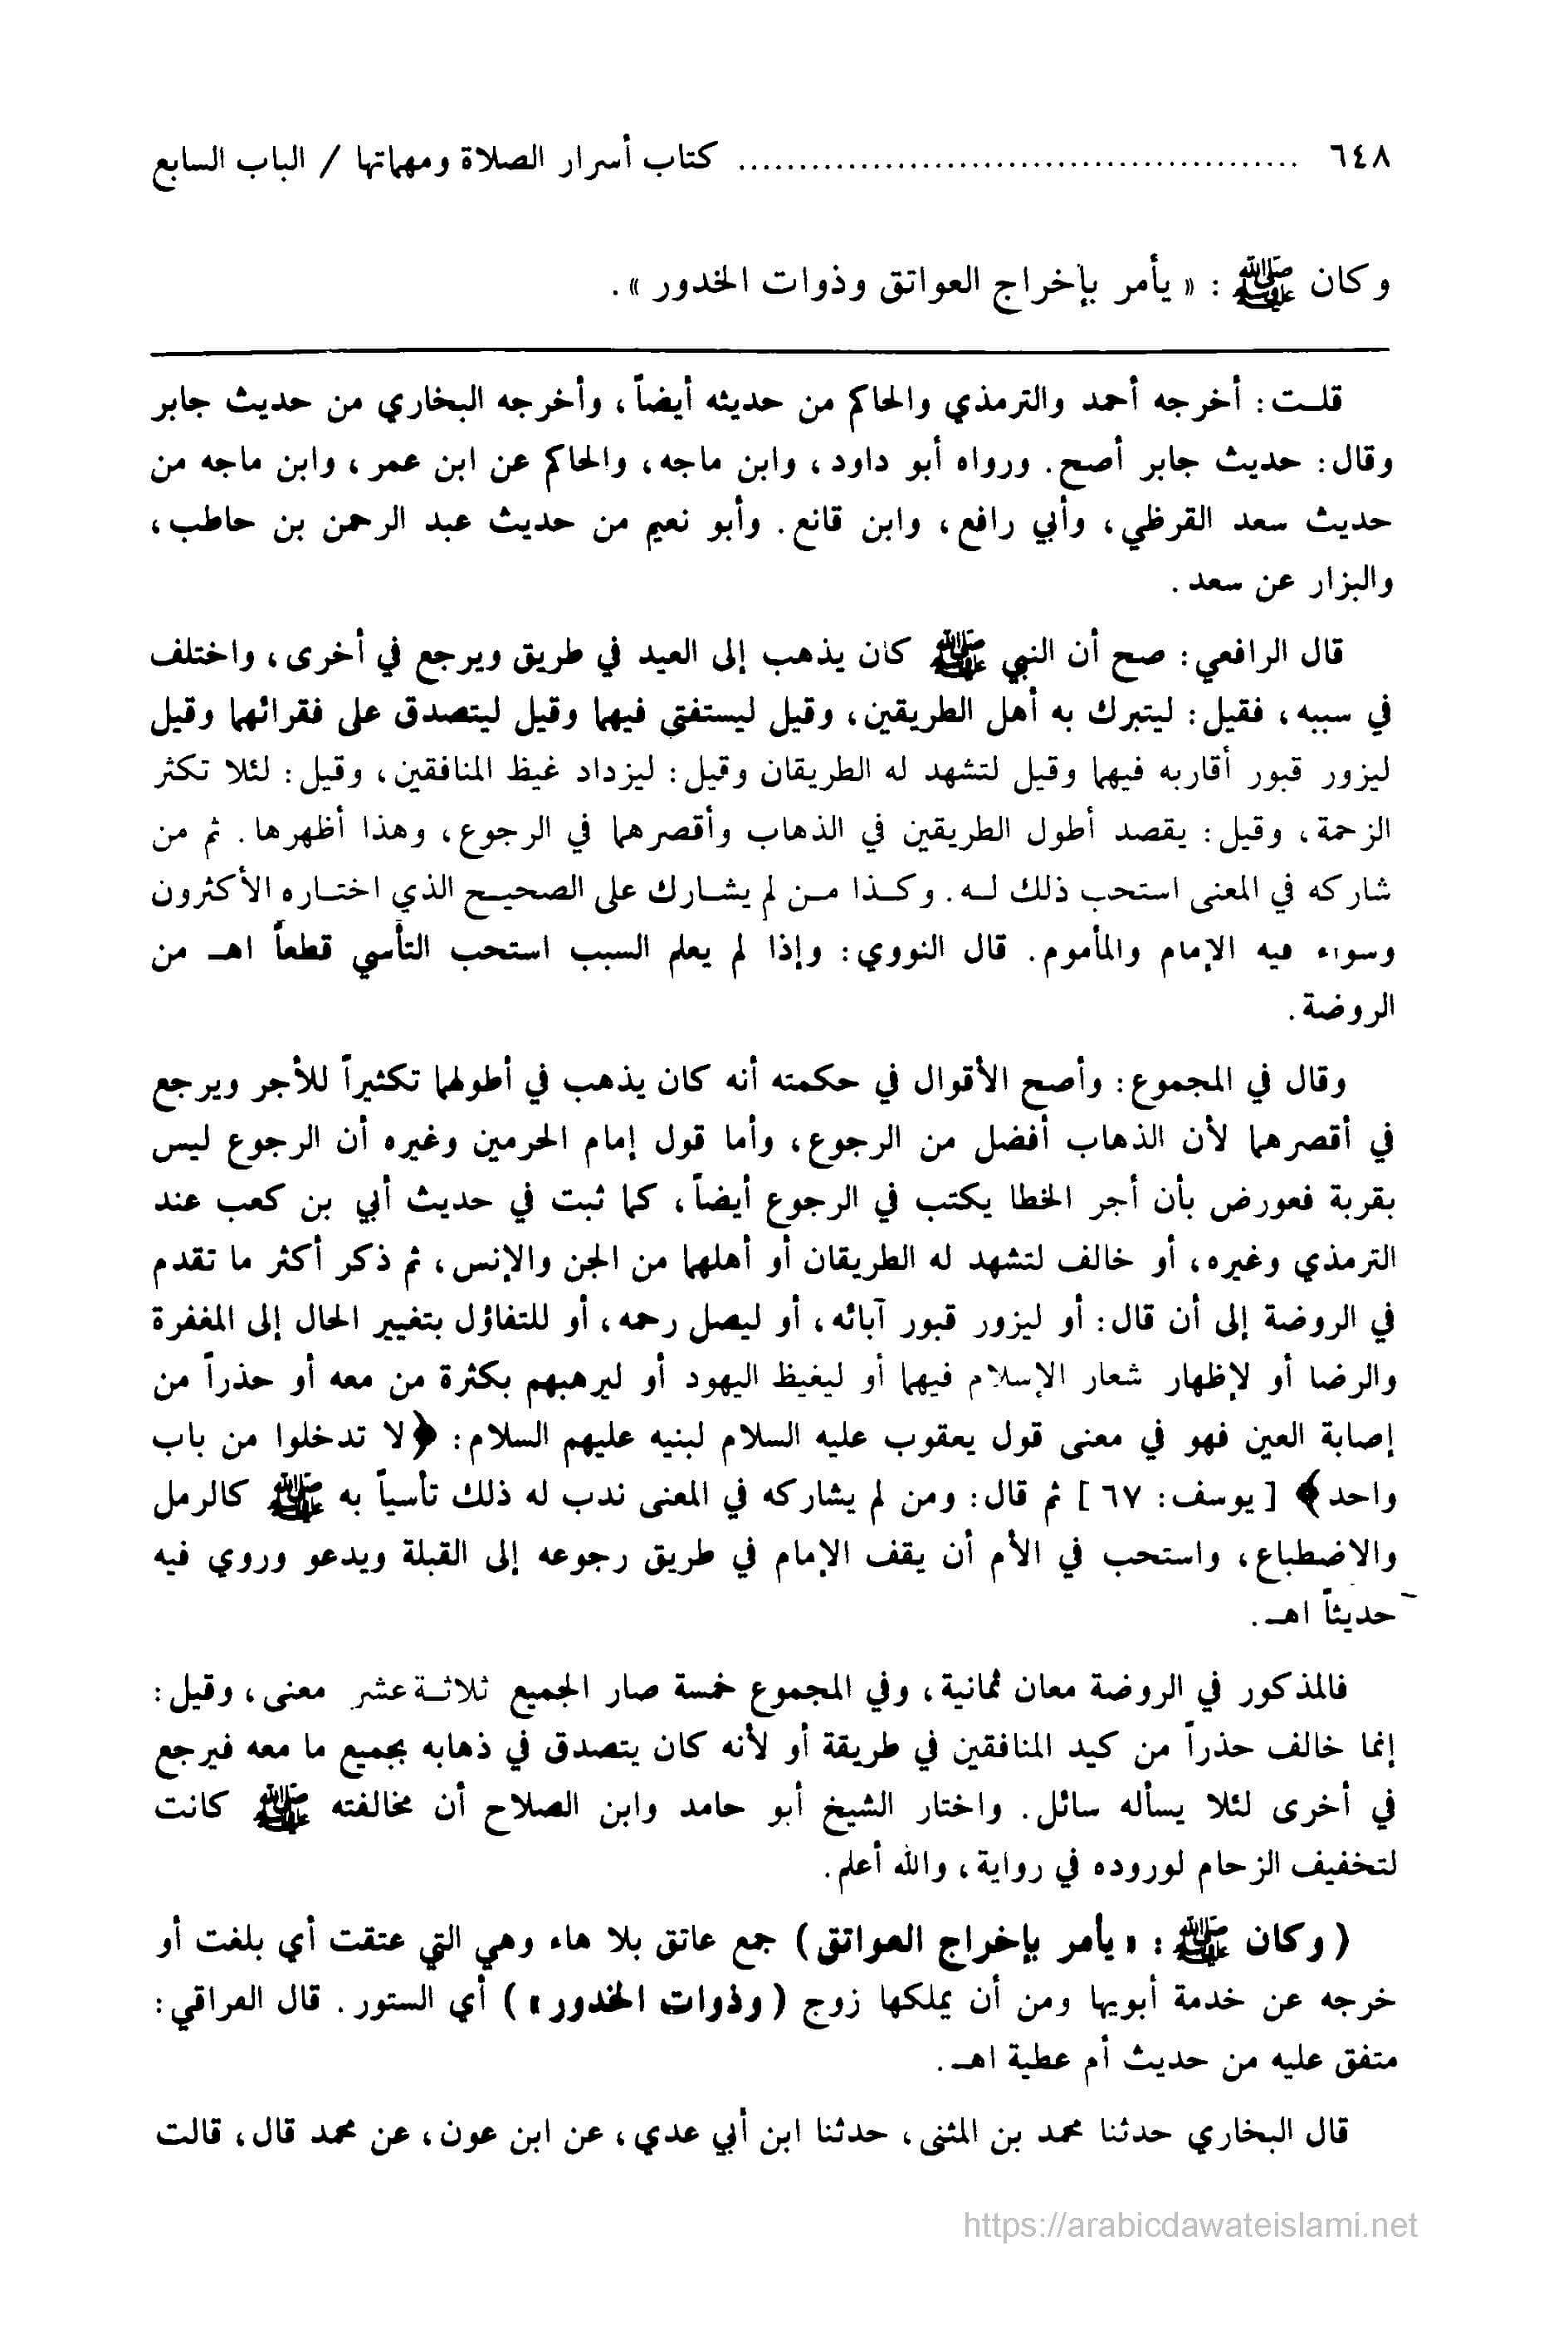 ٦٤٨ ............................................. كتاب أسرار الصلاة ومهماتها / الباب السابع
وكان ﷺ : « يأمر بإخراج العواتق وذوات الخدور ».
قلـت: أخرجه أحمد والترمذي والحاكم من حديثه أيضاً، وأخرجه البخاري من حديث جابر
وقال: حديث جابر أصح. ورواه أبو داود، وابن ماجه، والحاكم عن ابن عمر، وابن ماجه من
حديث سعد القرظي، وأبي رافع، وابن قانع. وأبو نعيم من حديث عبد الرحمن بن حاطب،
والبزار عن سعد.
قال الرافعي: صح أن النبي ﷺ كان يذهب إلى العيد في طريق ويرجع في أخرى، واختلف
في سببه، فقيل: ليتبرك به أهل الطريقين، وقيل ليستفتى فيهما وقيل ليتصدق على فقرائهما وقيل
ليزور قبور أقاربه فيهما وقيل لتشهد له الطريقان وقيل: ليزداد غيظ المنافقين، وقيل: لئلا تكثر
الزحمة، وقيل: يقصد أطول الطريقين في الذهاب وأقصرهما في الرجوع، وهذا أظهرها. ثم من
شاركه في المعنى استحب ذلك لـه. وكـذا مـن لم يشـارك على الصحيـح الذي اختـاره الأكثرون
وسواء فيه الإمام والمأموم. قال النووي: وإذا لم يعلم السبب استحب التأسي قطعاً اهـ من
الروضة.
وقال في المجموع: وأصح الأقوال في حكمته أنه كان يذهب في أطولهما تكثيراً للأجر ويرجع
في أقصرهما لأن الذهاب أفضل من الرجوع، وأما قول إمام الحرمين وغيره أن الرجوع ليس
بقربة فعورض بأن أجر الخطا يكتب في الرجوع أيضاً، كما ثبت في حديث أبي بن كعب عند
الترمذي وغيره، أو خالف لتشهد له الطريقان أو أهلهما من الجن والإنس، ثم ذكر أكثر ما تقدم
في الروضة إلى أن قال: أو ليزور قبور آبائه، أو ليصل رحمه، أو للتفاؤل بتغيير الحال إلى المغفرة
والرضا أو لإظهار شعار الإسلام فيهما أو ليغيظ اليهود أو ليرهبهم بكثرة من معه أو حذراً من
إصابة العين فهو في معنى قول يعقوب عليه السلام لبنيه عليهم السلام: ﴿لا تدخلوا من باب
واحد﴾ [ يوسف: ٦٧ ] ثم قال: ومن لم يشاركه في المعنى ندب له ذلك تأسياً به ﷺ كالرمل
والاضطباع، واستحب في الأم أن يقف الإمام في طريق رجوعه إلى القبلة ويدعو وروي فيه
حديثاً اهـ.
فالمذكور في الروضة معان ثمانية، وفي المجموع خمسة صار الجميع ثلاثـة عشر معنى، وقيل:
إنما خالف حذراً من كيد المنافقين في طريقة أو لأنه كان يتصدق في ذهابه بجميع ما معه فيرجع
في أخرى لئلا يسأله سائل. واختار الشيخ أبو حامد وابن الصلاح أن مخالفته ﷺ كانت
لتخفيف الزحام لوروده في رواية، والله أعلم.
( وكان ﷺ : « يأمر بإخراج العواتق ) جمع عاتق بلا هاء وهي التي عتقت أي بلغت أو
خرجه عن خدمة أبويها ومن أن يملكها زوج ( وذوات الخدور » ) أي الستور. قال العراقي:
متفق عليه من حديث أم عطية اهـ.
قال البخاري حدثنا محمد بن المثنى، حدثنا ابن أبي عدي، عن ابن عون، عن محمد قال، قالت
https://arabicdawateislami.net